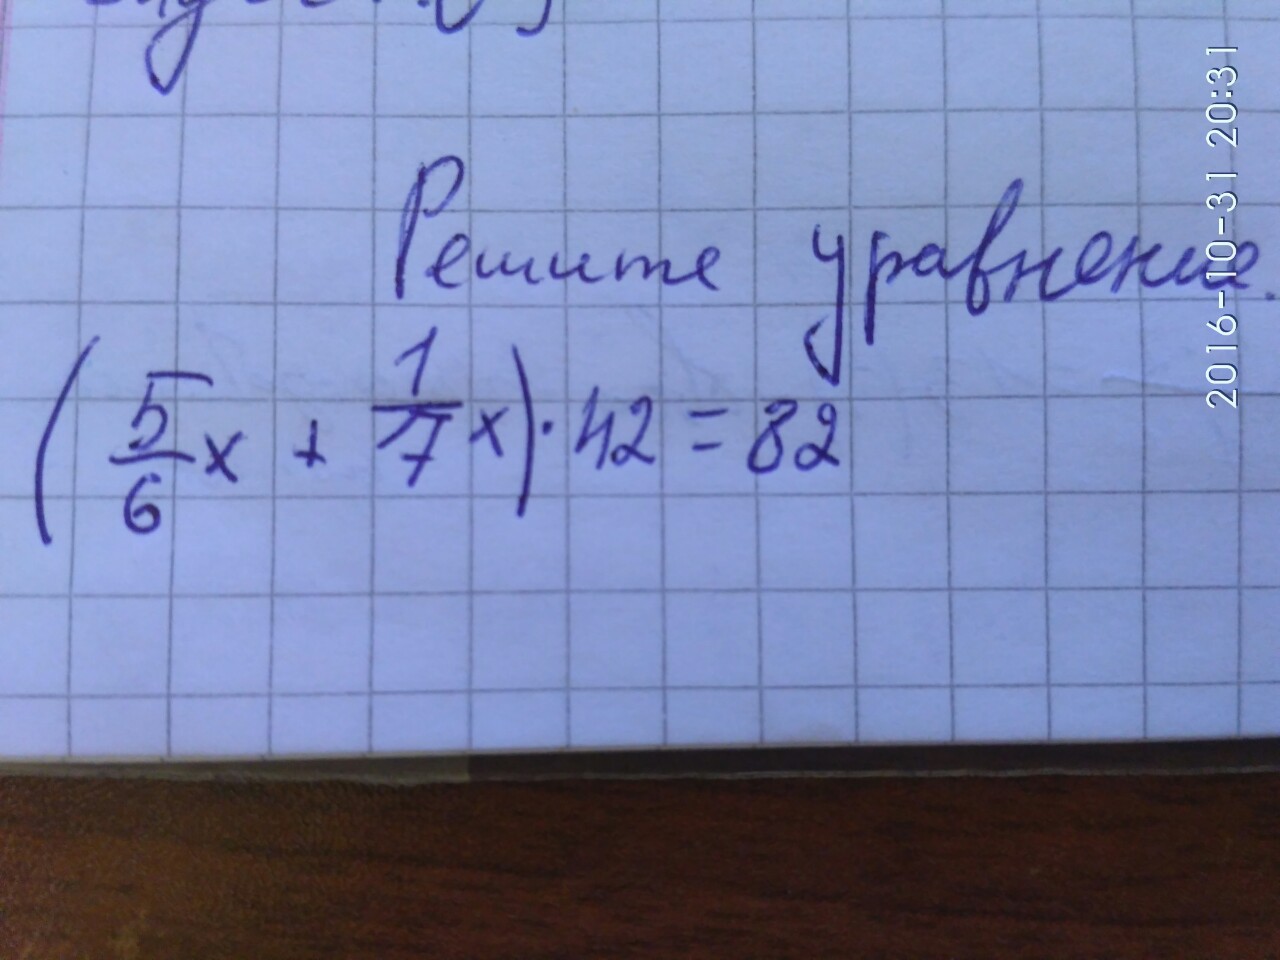 Решите уравнение.
(5/6 x + 1/7 x) · 42 = 82
2016-10-31 20:31